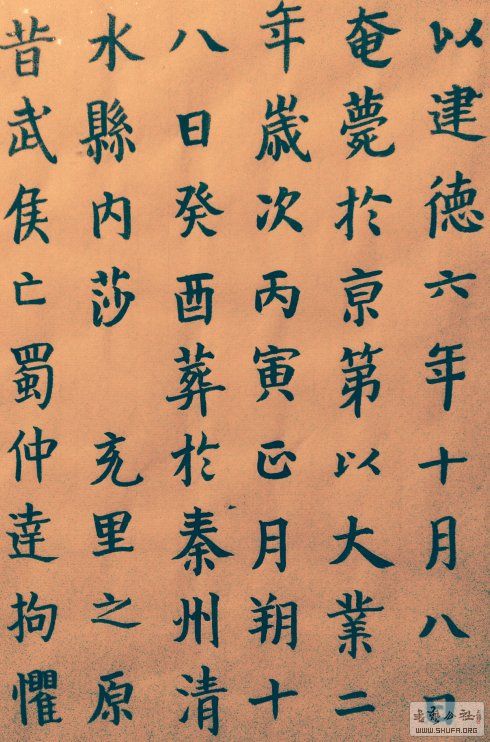 以建德六年十月八日
奄薨於亰第以大業二
年歲次丙寅正月朔十
八日癸酉葬於秦州清
水縣內莎 充里之原
昔武侯亡蜀仲達拘懼
WWW.SHUFA.ORG